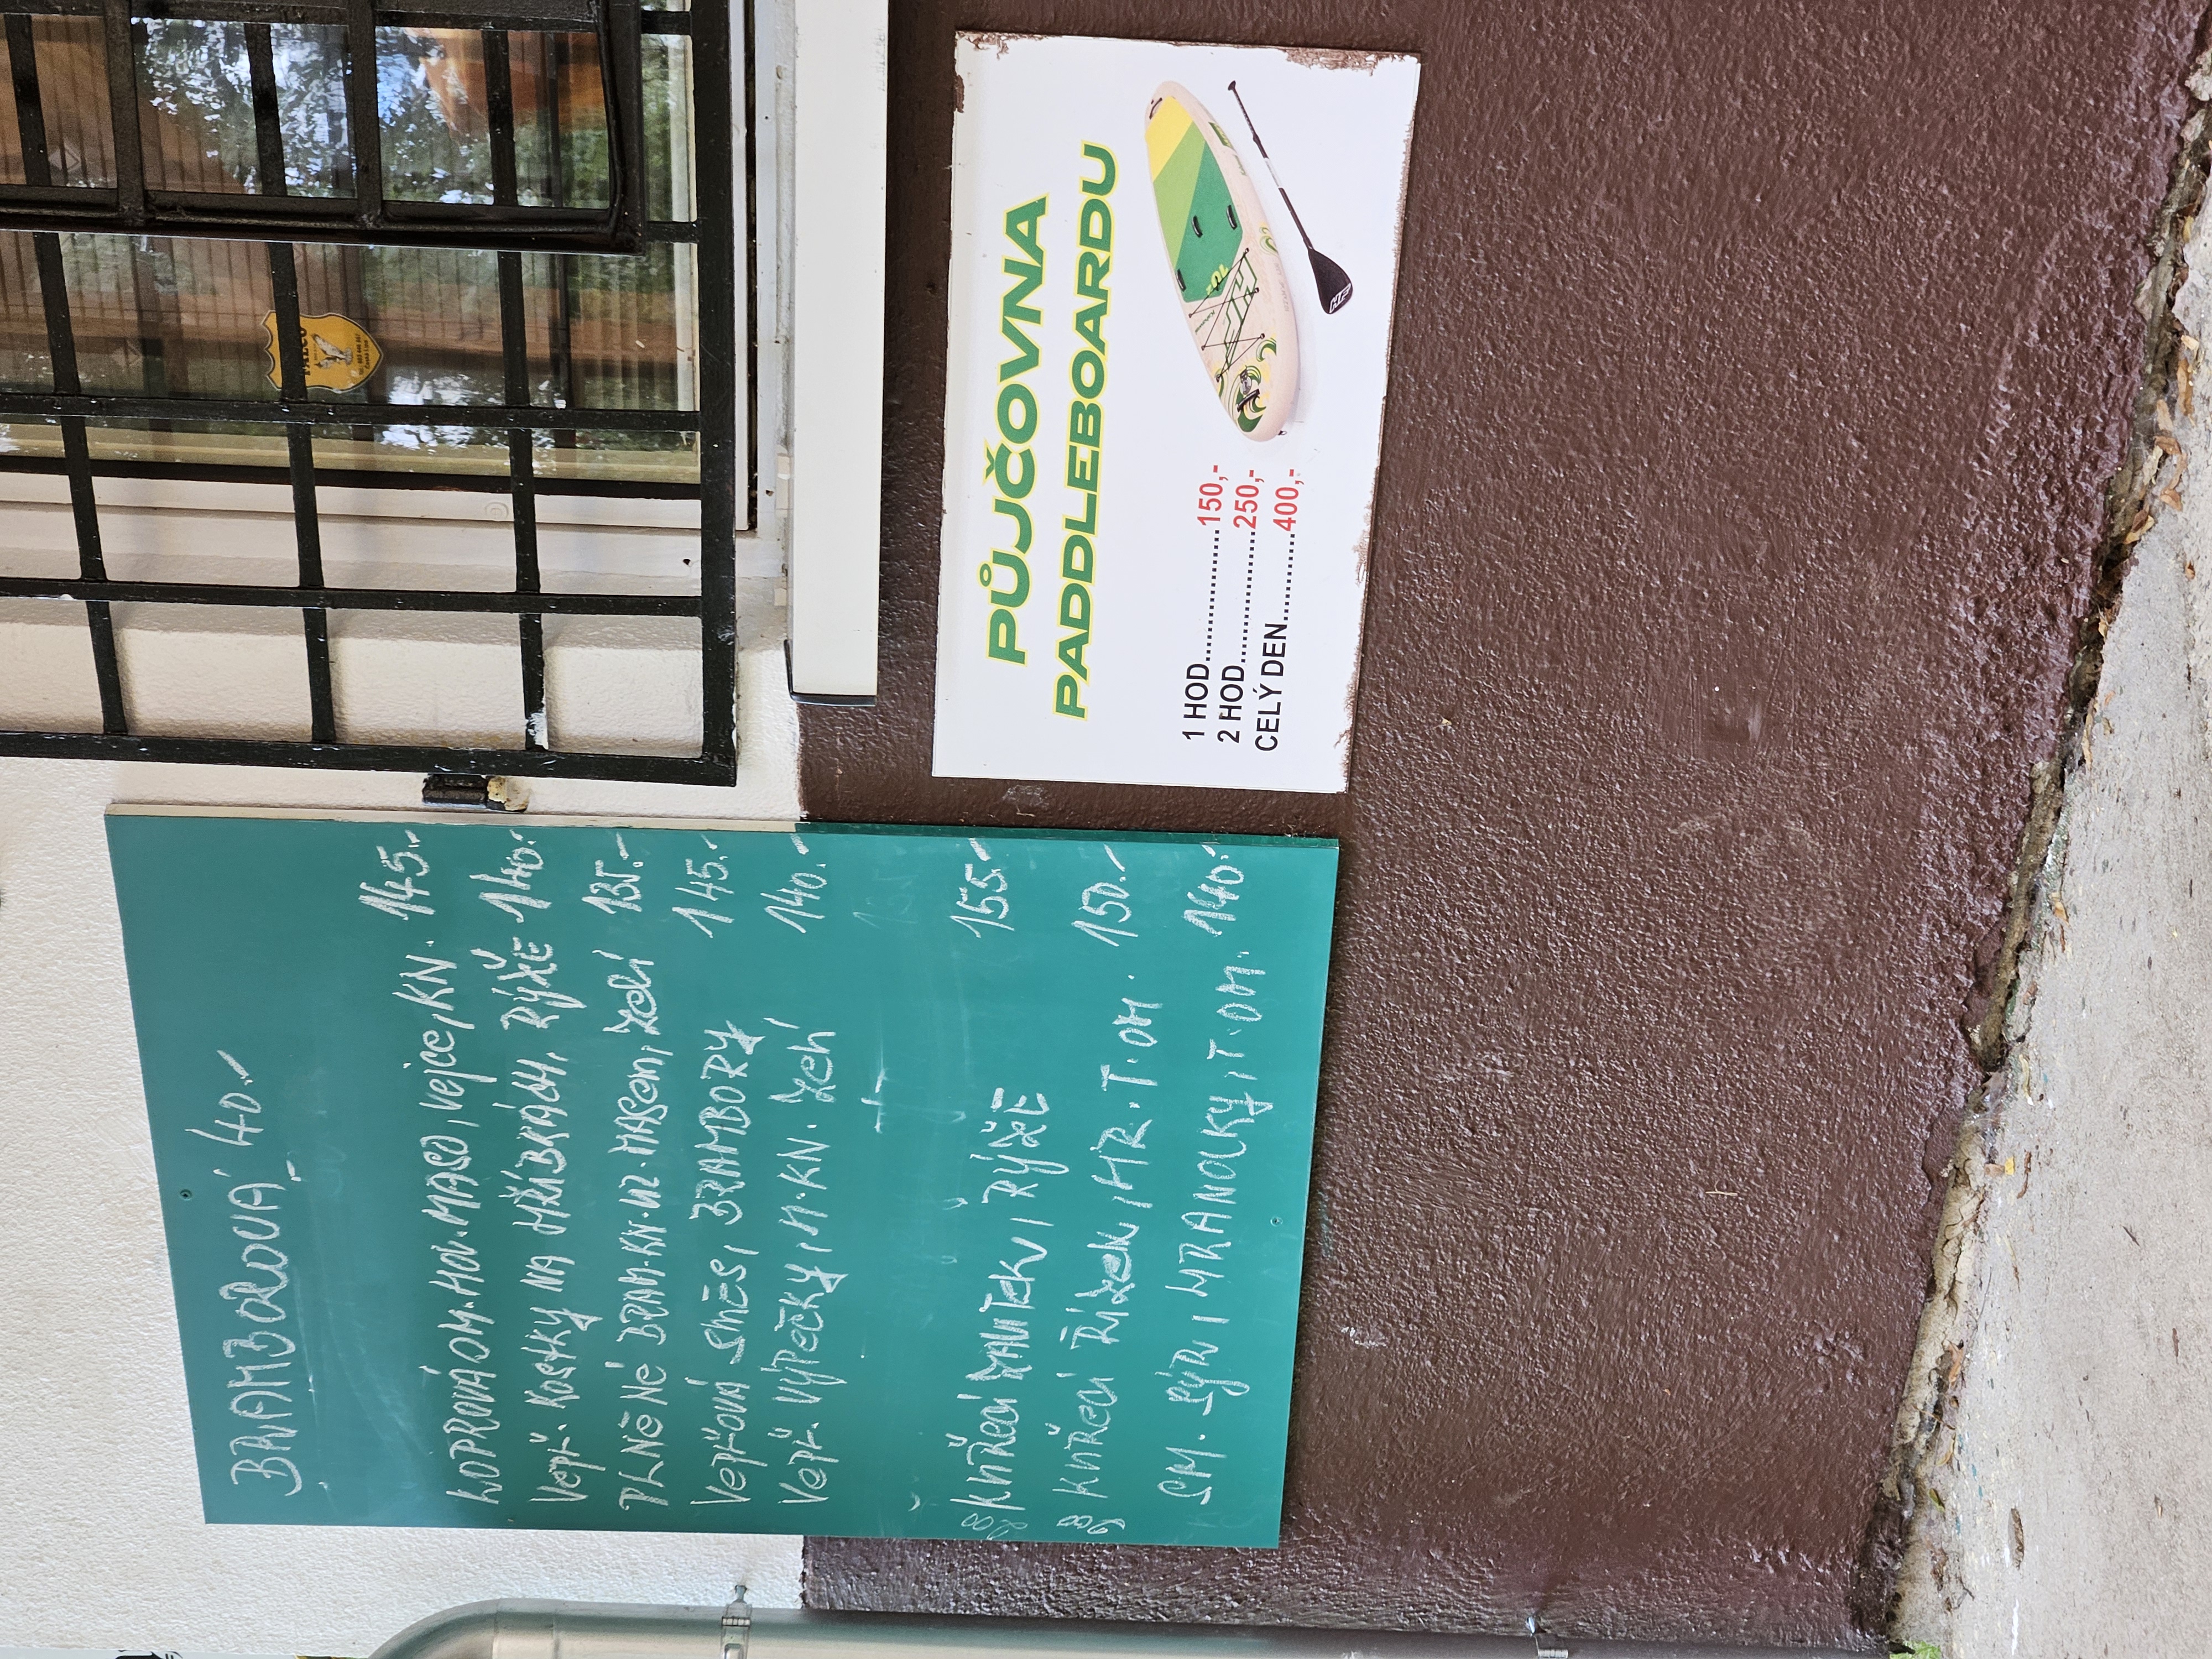 BRAMBOROVÁ 40.-
KOPROVÁ OM. HOV. MASO, vejce, KN. 145.-
Vepř. Kostky NA HŘIBKÁCH, RÝŽE 140.-
PLNĚNÉ BRAM. KN. UZ. MASem, zelí 135.-
Vepřová směs, BRAMBORY 145.-
Vepř. Výpečky, H. KN. zelí 140.-
8) KUŘecí PLÁTek, RÝŽE 155.-
9) KUŘecí Řízek, HR. T. OM. 150.-
SM. SÝR, HRANOLKY, T. OM. 140.-
PŮJČOVNA
PADDLEBOARDU
1 HOD..................150,-
2 HOD..................250,-
CELÝ DEN............400,-